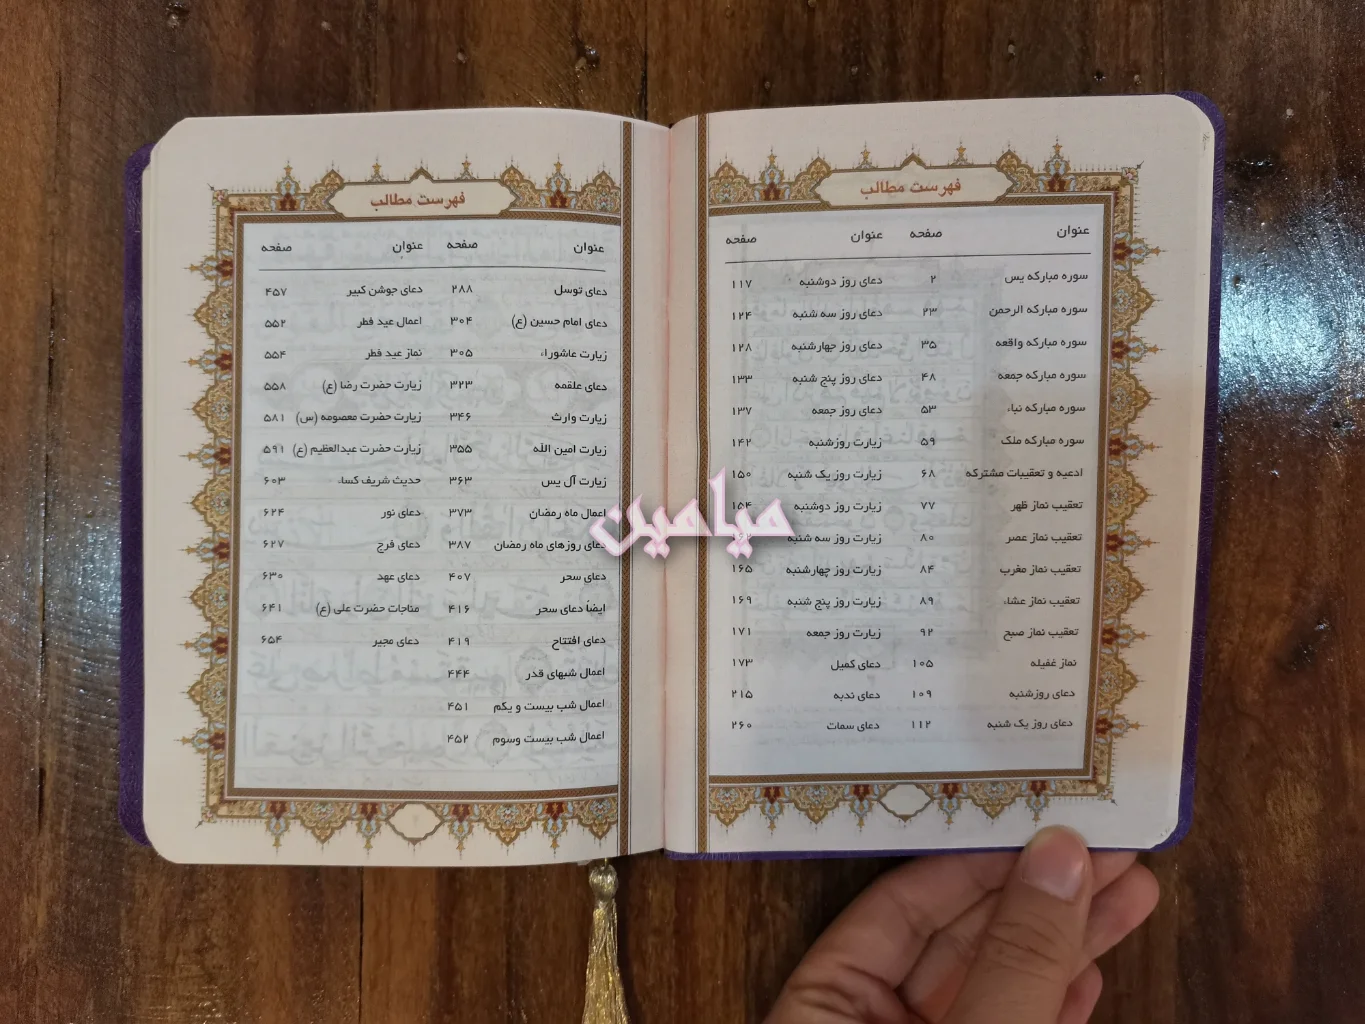 فهرست مطالب
عنوان صفحه عنوان صفحه
سوره مبارکه یس ۲ دعای روز دوشنبه ۱۱۷
سوره مبارکه الرحمن ۲۳ دعای روز سه شنبه ۱۲۴
سوره مبارکه واقعه ۳۵ دعای روز چهارشنبه ۱۲۸
سوره مبارکه جمعه ۴۸ دعای روز پنج شنبه ۱۳۳
سوره مبارکه نباء ۵۳ دعای روز جمعه ۱۳۷
سوره مبارکه ملک ۵۹ زیارت روزشنبه ۱۴۲
ادعیه و تعقیبات مشترکه ۶۸ زیارت روز یک شنبه ۱۵۰
تعقیب نماز ظهر ۷۷ زیارت روز دوشنبه ۱۵۴
تعقیب نماز عصر ۸۰ زیارت روز سه شنبه ۱۶۲
تعقیب نماز مغرب ۸۴ زیارت روز چهارشنبه ۱۶۵
تعقیب نماز عشاء ۸۹ زیارت روز پنج شنبه ۱۶۹
تعقیب نماز صبح ۹۲ زیارت روز جمعه ۱۷۱
نماز غفیله ۱۰۵ دعای کمیل ۱۷۳
دعای روزشنبه ۱۰۹ دعای ندبه ۲۱۵
دعای روز یک شنبه ۱۱۲ دعای سمات ۲۶۰
فهرست مطالب
عنوان صفحه عنوان صفحه
دعای توسل ۲۸۸ دعای جوشن کبیر ۴۵۷
دعای امام حسین (ع) ۳۰۴ اعمال عید فطر ۵۵۲
زیارت عاشوراء ۳۰۵ نماز عید فطر ۵۵۴
دعای علقمه ۳۲۳ زیارت حضرت رضا (ع) ۵۵۸
زیارت وارث ۳۴۶ زیارت حضرت معصومه (س) ۵۸۱
زیارت امین الله ۳۵۵ زیارت حضرت عبدالعظیم (ع) ۵۹۱
زیارت آل یس ۳۶۳ حدیث شریف کساء ۶۰۳
اعمال ماه رمضان ۳۷۳ دعای نور ۶۲۴
دعای روزهای ماه رمضان ۳۸۷ دعای فرج ۶۲۷
دعای سحر ۴۰۷ دعای عهد ۶۳۰
ایضاً دعای سحر ۴۱۶ مناجات حضرت علی (ع) ۶۴۱
دعای افتتاح ۴۱۹ دعای مجیر ۶۵۴
اعمال شبهای قدر ۴۴۴
اعمال شب بیست و یکم ۴۵۱
اعمال شب بیست وسوم ۴۵۲
میامین